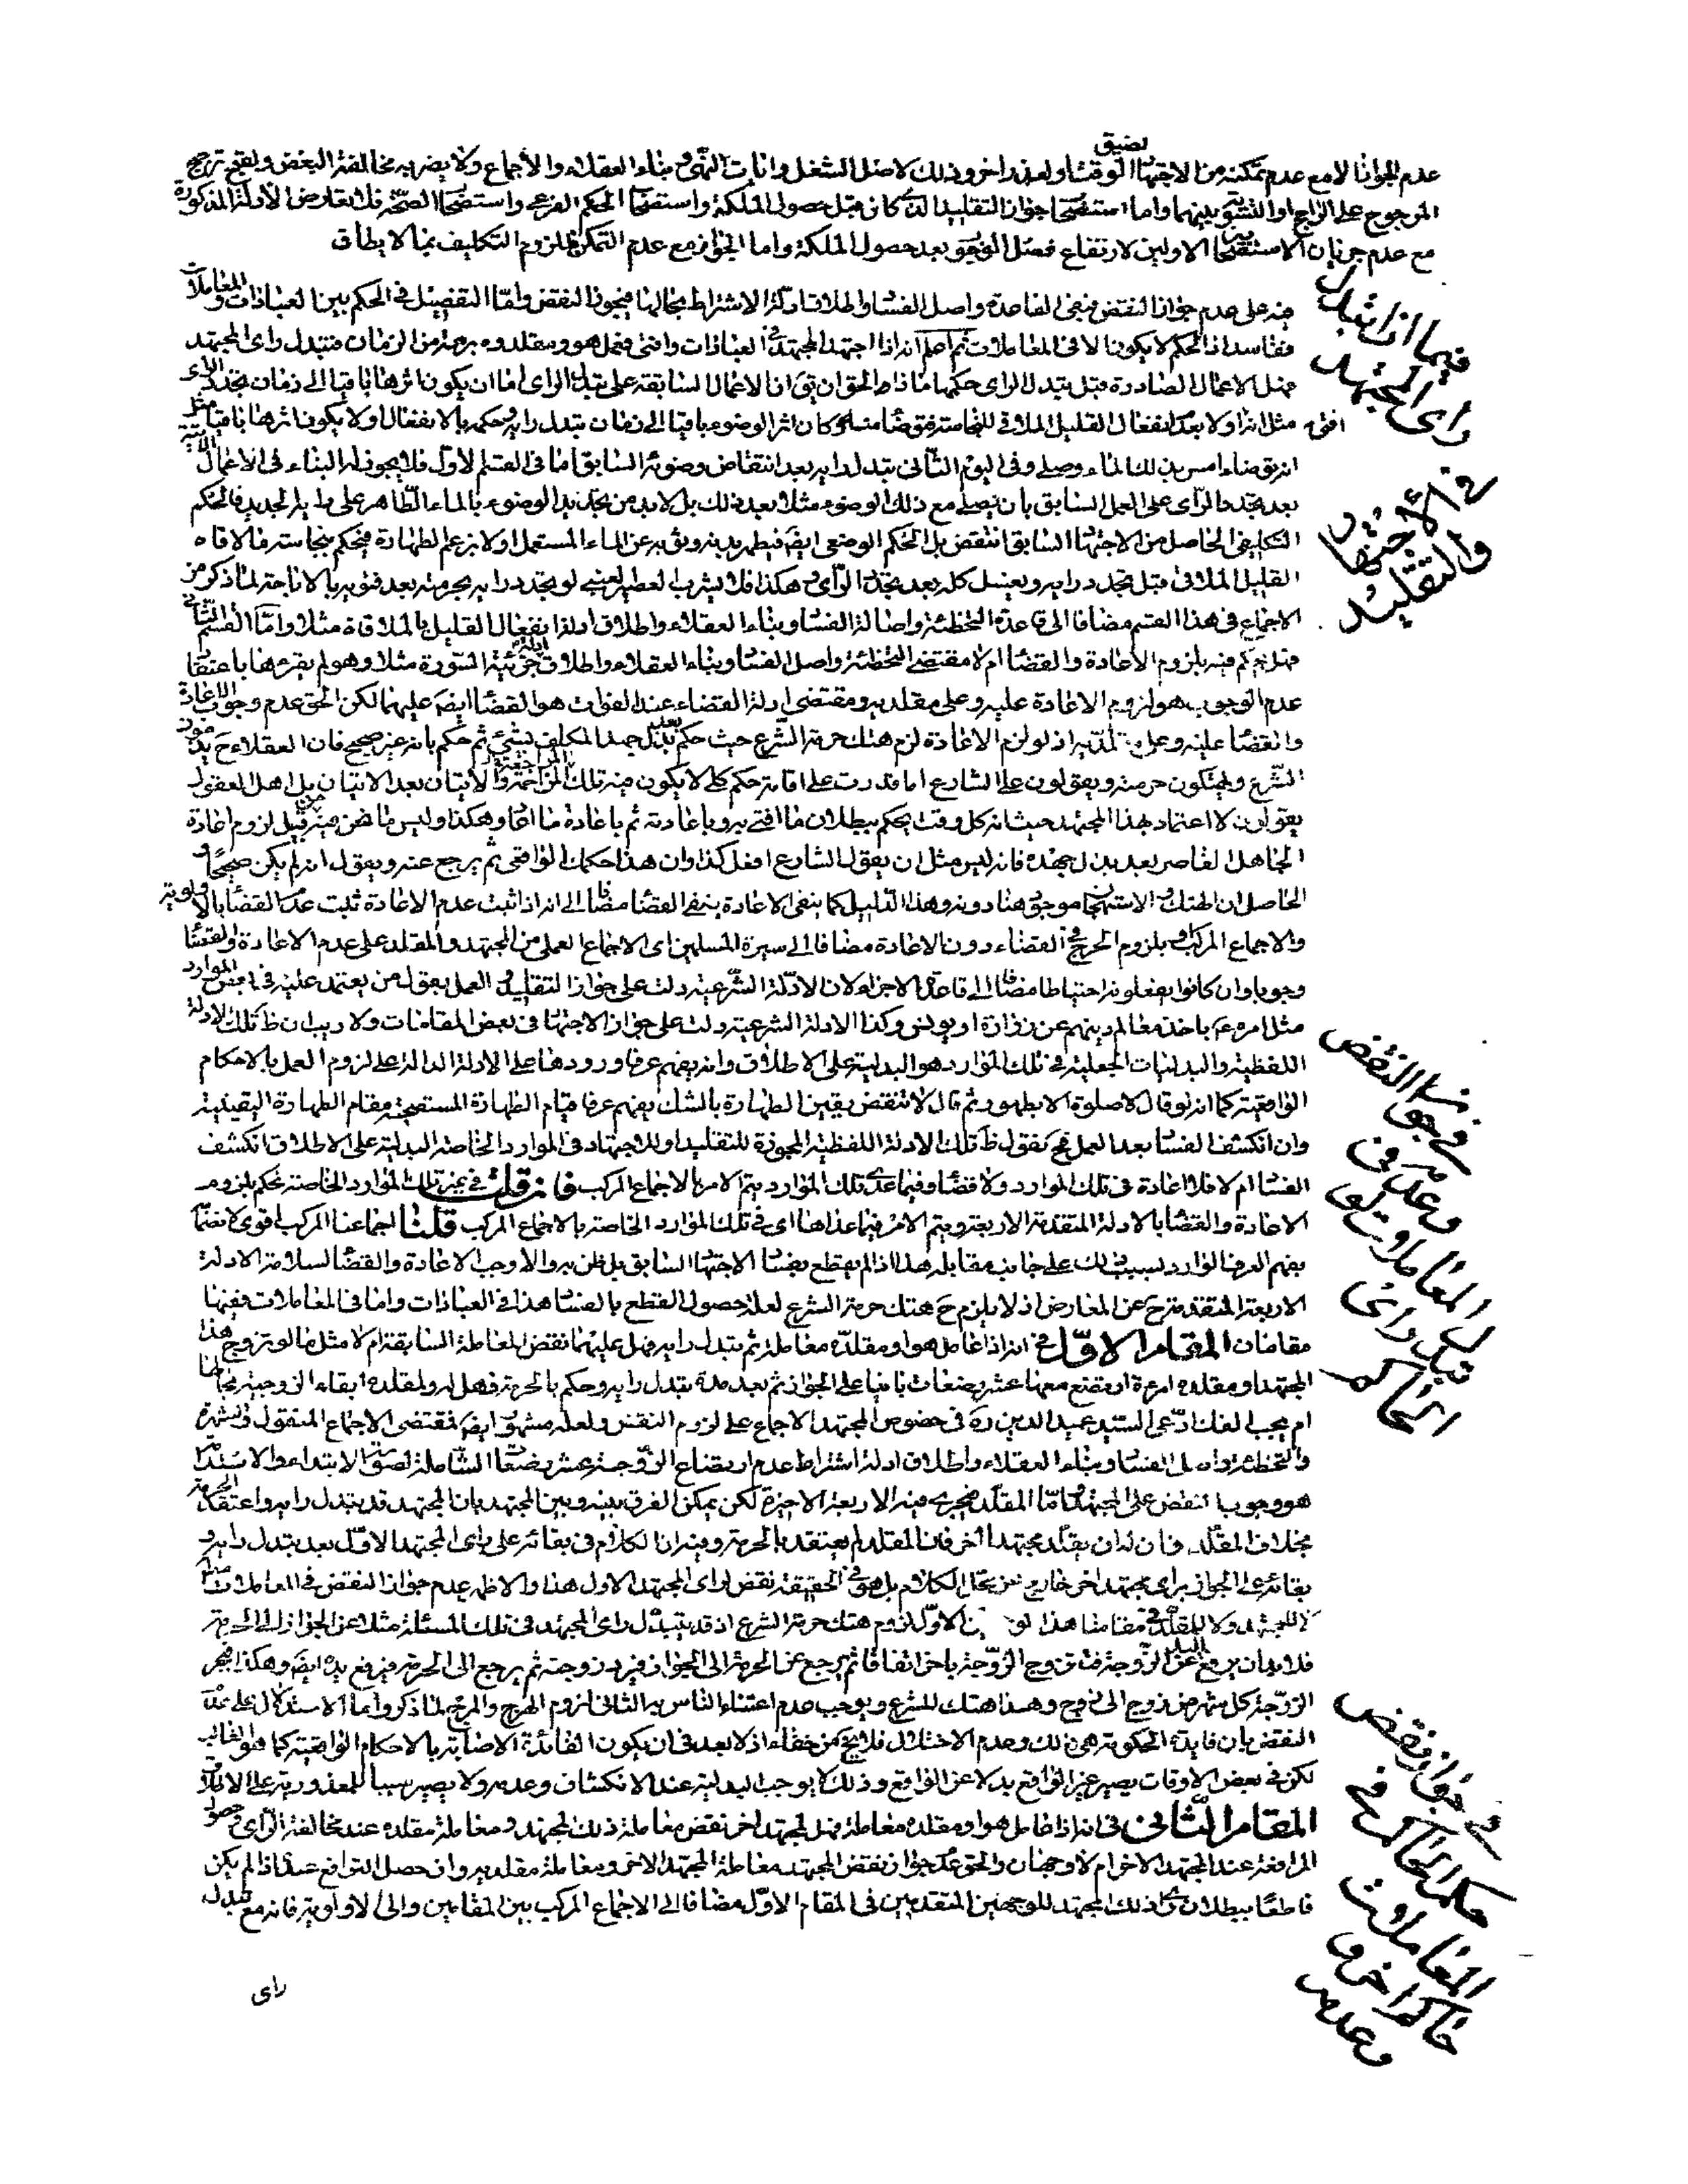 عدم الجواز الا مع عدم تمكنه من الاجتهاد لضيق الوقت او لعذر اخر وذلك لاصل الشغل وايات النهى وبناء العقلاء والاجماع ولا يضر به مخالفة البعض ولقبح ترجيح
المرجوح على الراجح او التسوية بينهما واما استصحاب جواز التقليد الذى كان قبل حصول الملكة واستصحاب الحكم الفرعى واستصحاب الصحة فلا تعارض الادلة المذكورة
مع عدم جريان الاستصحابين الاولين لارتفاع فصل الوجوب بعد حصول الملكة واما الجواز مع عدم التمكن فللزوم التكليف بما لا يطاق
فيما اذا تبدل راى المجتهد
فى الاجتهاد والتقليد
على عدم جواز النقض فبقى القاعدة واصل الفساد واطلاقات ادلة الاشتراط بحالها فيجوز النقض واما التفصيل فى الحكم بين العبادات والمعاملات
ففاسد اذ الحكم لا يكون الا فى المعاملات ثم اعلم انه اذا اجتهد المجتهد فى العبادات وافتى فعمل هو ومقلدوه برهة من الزمان فتبدل راى المجتهد
فهل الاعمال الصادرة قبل تبدل الراى حكمها ماذا والحق ان يق ان الاعمال السابقة على تبدل الراى اما ان يكون اثرها باقيا الى زمان تجدد الراى
مثل انه افتى اولا بعدم انفعال القليل الملاقى للنجاسة فتوضا منه وكان اثر الوضوء باقيا الى زمان تبدل رايه وحكمه بالانفعال او لا يكون اثرها باقيا مثل
انه توضا امس بذلك الماء وصلى وفى اليوم الثانى تبدل رايه بعد انتقاض وضوئه السابق اما فى القسم الاول فلا يجوز له البناء فى الاعمال الاتية
بعد تجدد الراى على العمل السابق بان يصلى مع ذلك الوضوء مثلا بعد ذلك بل لا بد من تجديد الوضوء بالماء الطاهر على رايه الجديد فالحكم
التكليفى الحاصل من الاجتهاد السابق انتقض بل الحكم الوضعى ايضا فيطهر بدنه وثوبه عن الماء المستعمل اولا بزعم الطهارة فيحكم بنجاسة ما لاقاه
القليل الملاقى قبل تجدد رايه ويغسل كله بعد تجدد الراى وهكذا فلا يشرب العصير العنبى لو تجدد رايه بحرمته بعد فتويه بالاباحة لما ذكر من
الاجماع فى هذا القسم مضافا الى قاعدة التخطئة واصالة الفساد وبناء العقلاء واطلاق ادلة انفعال القليل بالملاقاة مثلا واما القسم الثانى
فهل يحكم فيه بلزوم الاعادة والقضاء ام لا مقتضى التخطئة واصل الفساد وبناء العقلاء واطلاق ادلة جزئية السورة مثلا وهو لم يقرءها باعتقاد
عدم الوجوب هو لزوم الاعادة عليه وعلى مقلديه ومقتضى ادلة القضاء عند الفوات هو القضاء ايضا عليهما لكن الحق عدم وجوب الاعادة
والقضاء عليه وعلى مقلديه اذ لو لزم الاعادة لزم هتك حرمة الشرع حيث حكم بعد بذل جهد المكلف بشىء ثم حكم بانه غير صحيح فان العقلاء ح يذمون
الشرع ويهتكون حرمته ويقولون على الشارع اما قدرت على اقامة حكم كلى لا يكون فيه تلك المزاحمة والاتيان بعد الاتيان بل اهل العقول
يقولون لا اعتماد بهذا المجتهد حيث انه كل وقت يحكم ببطلان ما افتى به وباعادته ثم باعادة ما اعاد وهكذا وليس ما نحن فيه من قبيل لزوم اعادة
الجاهل القاصر بعد بذل جهده فانه ليس مثل ان يقول الشارع افعل كذا وان هذا حكمك الواقعى ثم يرجع عنه ويقول انه لم يكن صحيحا و
الحاصل ان الهتك والاستهجان موجود هنا دونه وهذا الدليل كما ينفى الاعادة ينفى القضاء مضافا الى انه اذا ثبت عدم الاعادة ثبت عدم القضاء بالاولوية
والاجماع المركب وبلزوم الحرج فى القضاء دون الاعادة مضافا الى سيرة المسلمين اى الاجماع العملى من المجتهد والمقلد على عدم الاعادة والقضاء
وجوبا وان كانوا يفعلونه احتياطا مضافا الى قاعدة الاجزاء لان الادلة الشرعية دلت على جواز التقليد والعمل بقول من يعتمد عليه فى بعض الموارد
مثل امره ع باخذ معالم دينهم عن زرارة او يونس وكذا الادلة الشرعية دلت على جواز الاجتهاد فى بعض المقامات ولا ريب ان ظ تلك الادلة
اللفظية والبدليات الجعلية فى تلك الموارد هو البدلية على الاطلاق وانه يفهم عرفا ورودها على الادلة الدالة على لزوم العمل بالاحكام
الواقعية كما انه لو قال لا صلوة الا بطهور ثم قال لا تنقض يقين الطهارة بالشك يفهم عرفا قيام الطهارة المستصحبة مقام الطهارة اليقينية
وان انكشف الفساد بعد العمل فح نقول ظ تلك الادلة اللفظية المجوزة للتقليد او للاجتهاد فى الموارد الخاصة البدلية على الاطلاق انكشف
الفساد ام لا فلا اعادة فى تلك الموارد ولا قضاء وفيما عدى تلك الموارد يتم الامر بالاجماع المركب فان قلت فى غير تلك الموارد الخاصة نحكم بلزوم
الاعادة والقضاء بالادلة المتقدمة الاربعة ويتم الامر فيما عداها اى فى تلك الموارد الخاصة بالاجماع المركب قلنا اجماعنا المركب اقوى لانضمام
فهم العرف الوارد بسبب ذلك على جانب مقابله هذا اذا لم يقطع بفساد الاجتهاد السابق بل ظن به والا وجب الاعادة والقضاء لسلامة الادلة
الاربعة المتقدمة ح عن المعارض اذ لا يلزم ح هتك حرمة الشرع لعلة حصول القطع بالفساد هذا فى العبادات واما فى المعاملات ففيها
فى جواز النقض وعدمه فى المعاملات لو تبدل راى الحاكم
مقامان المقام الاول فى انه اذا عامل هو او مقلده معاملة ثم تبدل رايه فهل عليهما نقض المعاملة السابقة ام لا مثل ما لو تزوج هذا
المجتهد او مقلده امرءة ارتضع معها عشر رضعات بانيا على الجواز ثم بعد مدة تبدل رايه وحكم بالحرمة فهل له ولمقلده ابقاء الزوجية بحالها
ام يجب الفك ادعى السيد عميد الدين ره فى خصوص المجتهد الاجماع على لزوم النقض ولعله مشهور ايضا فمقتضى الاجماع المنقول والشهرة
والتخطئة واصل الفساد وبناء العقلاء واطلاق ادلة اشتراط عدم ارتضاع الزوجة عشر رضعات الشاملة لصورتى الابتداء والاستدامة
هو وجوب النقض على المجتهد واما المقلد فيجرى فيه الاربعة الاخيرة لكن يمكن الفرق بينه وبين المجتهد بان المجتهد قد يتبدل رايه واعتقد الحرمة
بخلاف المقلد فان له ان يقلد مجتهدا اخر فان المقلد لم يعتقد بالحرمة وفيه ان الكلام فى بقائه على راى المجتهد الاول بعد تبدل رايه و
بقائه على الجواز براى مجتهد اخر خارج عن محل الكلام بل هو فى الحقيقة نقض لراى المجتهد الاول هذا والاظهر عدم جواز النقض فى المعاملات
لا للمجتهد ولا للمقلد فى مقامنا هذا الاول لزوم هتك حرمة الشرع اذ قد يتبدل راى المجتهد فى تلك المسئلة مثلا عن الجواز الى الحرمة
فلا بد ان يرفع اليد عن الزوجة فتزوج الزوجة باخر اتفاقا ثم يرجع عن الحرمة الى الجواز فيرد زوجته ثم يرجع الى الحرمة فيرفع يده ايضا وهكذا فيجر
الزوجة كل يوم من زوج الى زوج وهذا هتك للشرع ويوجب عدم اعتناء الناس به الثانى لزوم الهرج والمرج لما ذكر واما الاستدلال على عدم
النقض بان فايدة الحكومة هى ذلك وعدم الاختلال فلا يخ من خفاء اذ لا بعد فى ان يكون الفائدة الاصابة بالاحكام الواقعية كما هو الغالب
لكن فى بعض الاوقات يصير غير الواقع بدلا عن الواقع وذلك لا يوجب البدلية عند الانكشاف وعدمه ولا يصير سببا للمعذورية على الاطلاق
فى جواز نقض حكم الحاكم فى المعاملات حاكم اخر وعدمه
المقام الثانى فى انه اذا عامل هو او مقلده معاملة فهل لمجتهد اخر نقض معاملة ذلك المجتهد ومعاملة مقلده عند مخالفة الراى وحصول
المرافعة عند المجتهد الاخر ام لا وجهان والحق عدم جواز نقض المجتهد معاملة المجتهد الاخر ومعاملة مقلديه وان حصل الترافع عنده اذا لم يكن
قاطعا ببطلان راى ذلك المجتهد للوجهين المتقدمين فى المقام الاول مضافا الى الاجماع المركب بين المقامين والى الاولوية فانه مع تبدل
راى